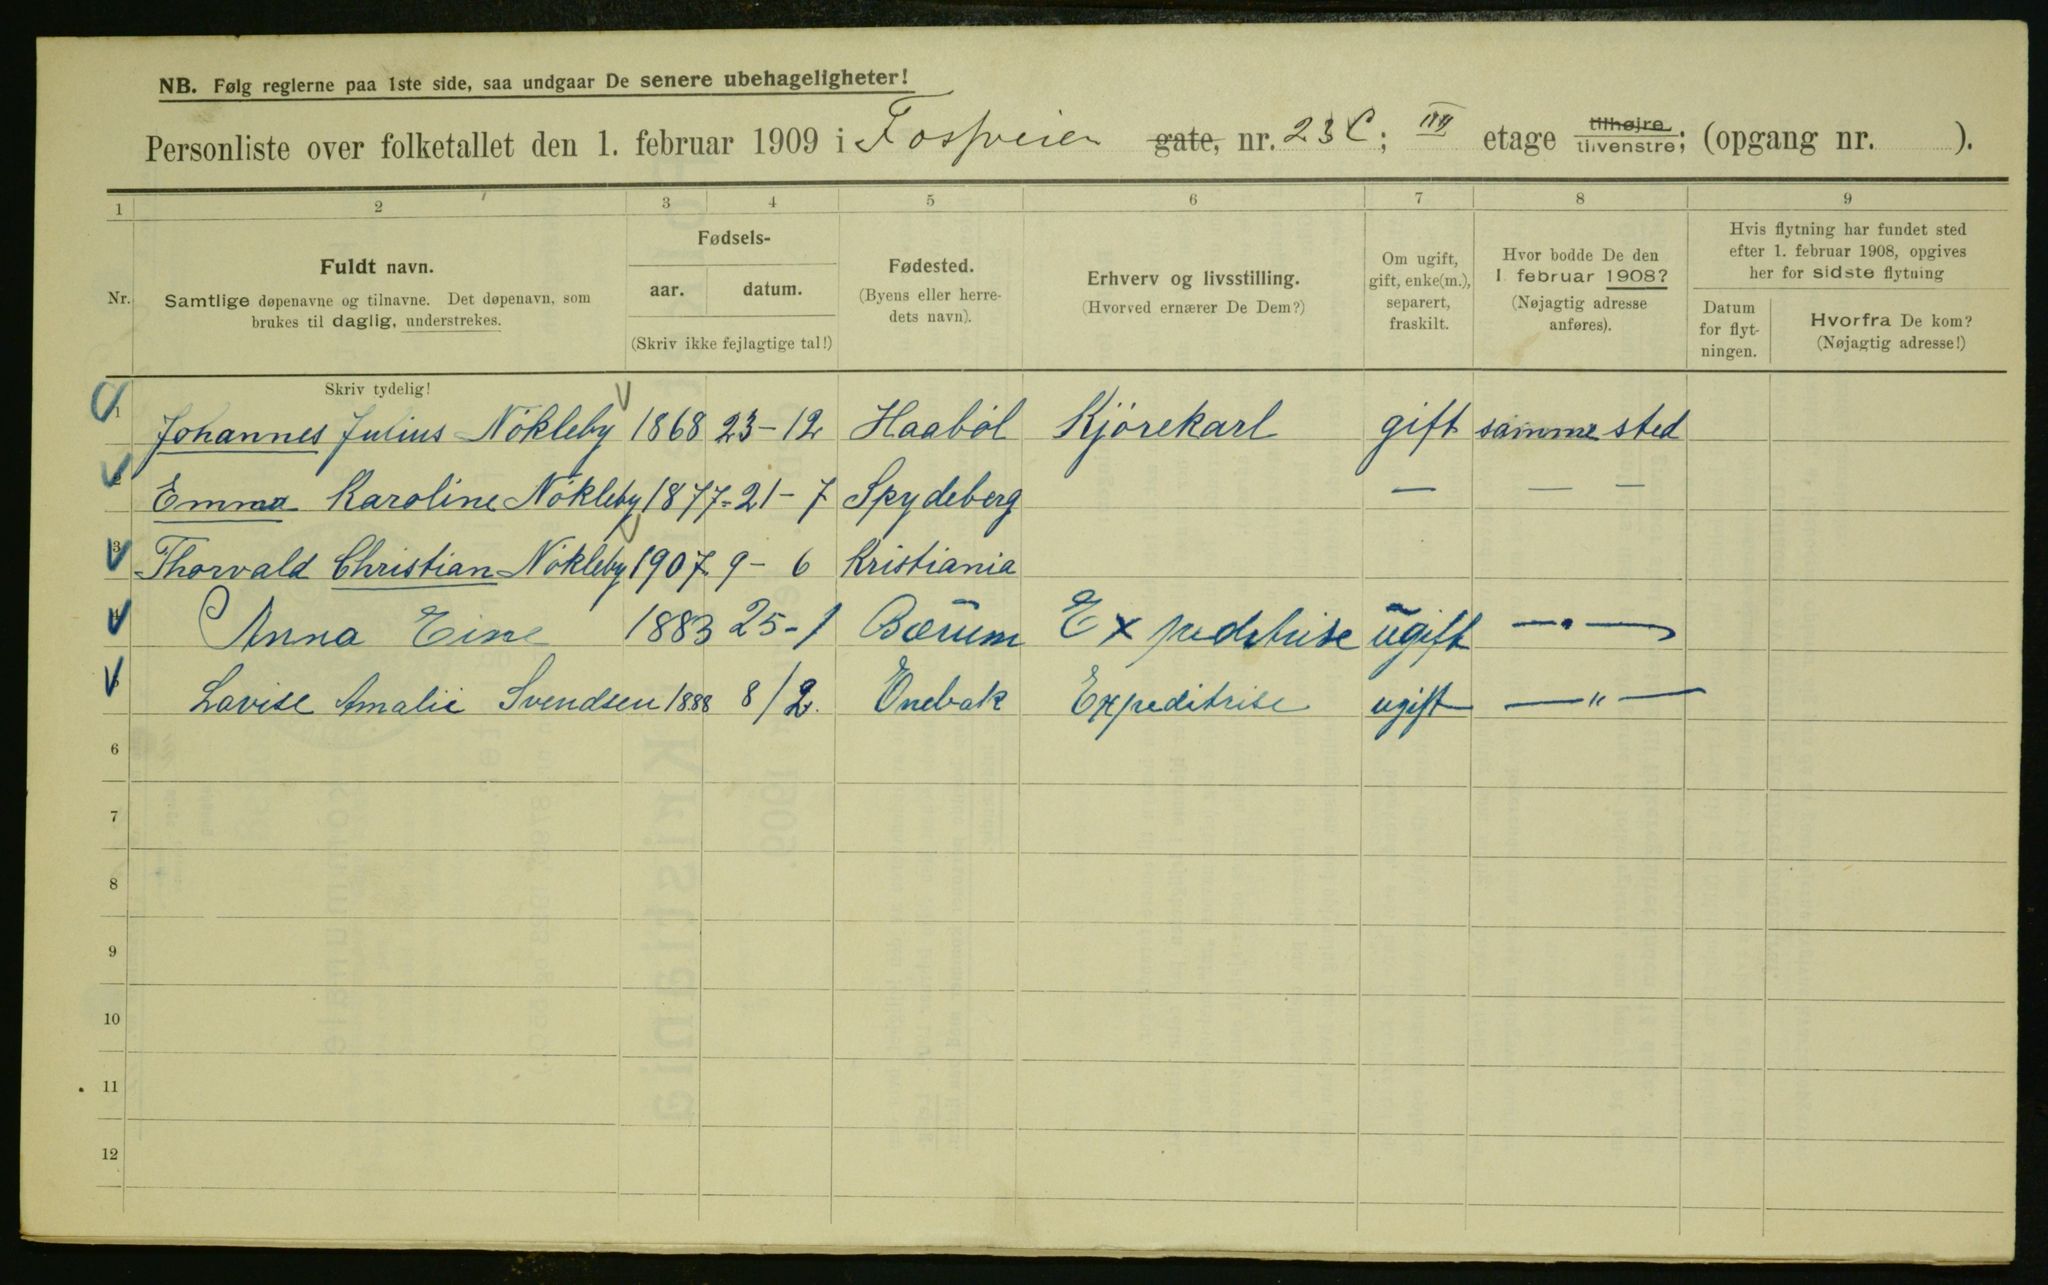 NB. Følg reglerne paa 1ste side, saa undgaar De senere ubehageligheter!
Personliste over folketallet den 1. februar 1909 i Fossveien gate, nr. 23 C; III etage tilhøjre tilvenstre; (opgang nr. ).
1 2 3 4 5 6 7 8 9
Nr.
Fuldt navn.
Samtlige døpenavne og tilnavne. Det døpenavn, som
brukes til daglig, understrekes.
Fødsels-
aar. datum.
(Skriv ikke fejlagtige tal!)
Fødested.
(Byens eller herre-
dets navn).
Erhverv og livsstilling.
(Hvorved ernærer De Dem?)
Om ugift,
gift, enke(m.),
separert,
fraskilt.
Hvor bodde De den
1. februar 1908?
(Nøjagtig adresse
anføres).
Hvis flytning har fundet sted
efter 1. februar 1908, opgives
her for sidste flytning
Datum
for flyt-
ningen.
Hvorfra De kom?
(Nøjagtig adresse!)
Skriv tydelig!
1 Johannes Julius Nökleby 1868 23-12 Haaböl Kjörekarl gift samme sted
2 Emma Karoline Nökleby 1877 - 21 - 7 Spydeberg — — —
3 Thorvald Christian Nökleby 1907 9 - 6 Kristiania
4 Anna Eine 1883 25-1 Bærum Expedetrise ugift —„—
Lovise Amalie Svendsen 1888 8/2. Enebak Expeditrise ugift —„—
6
7
8
9
10
11
12